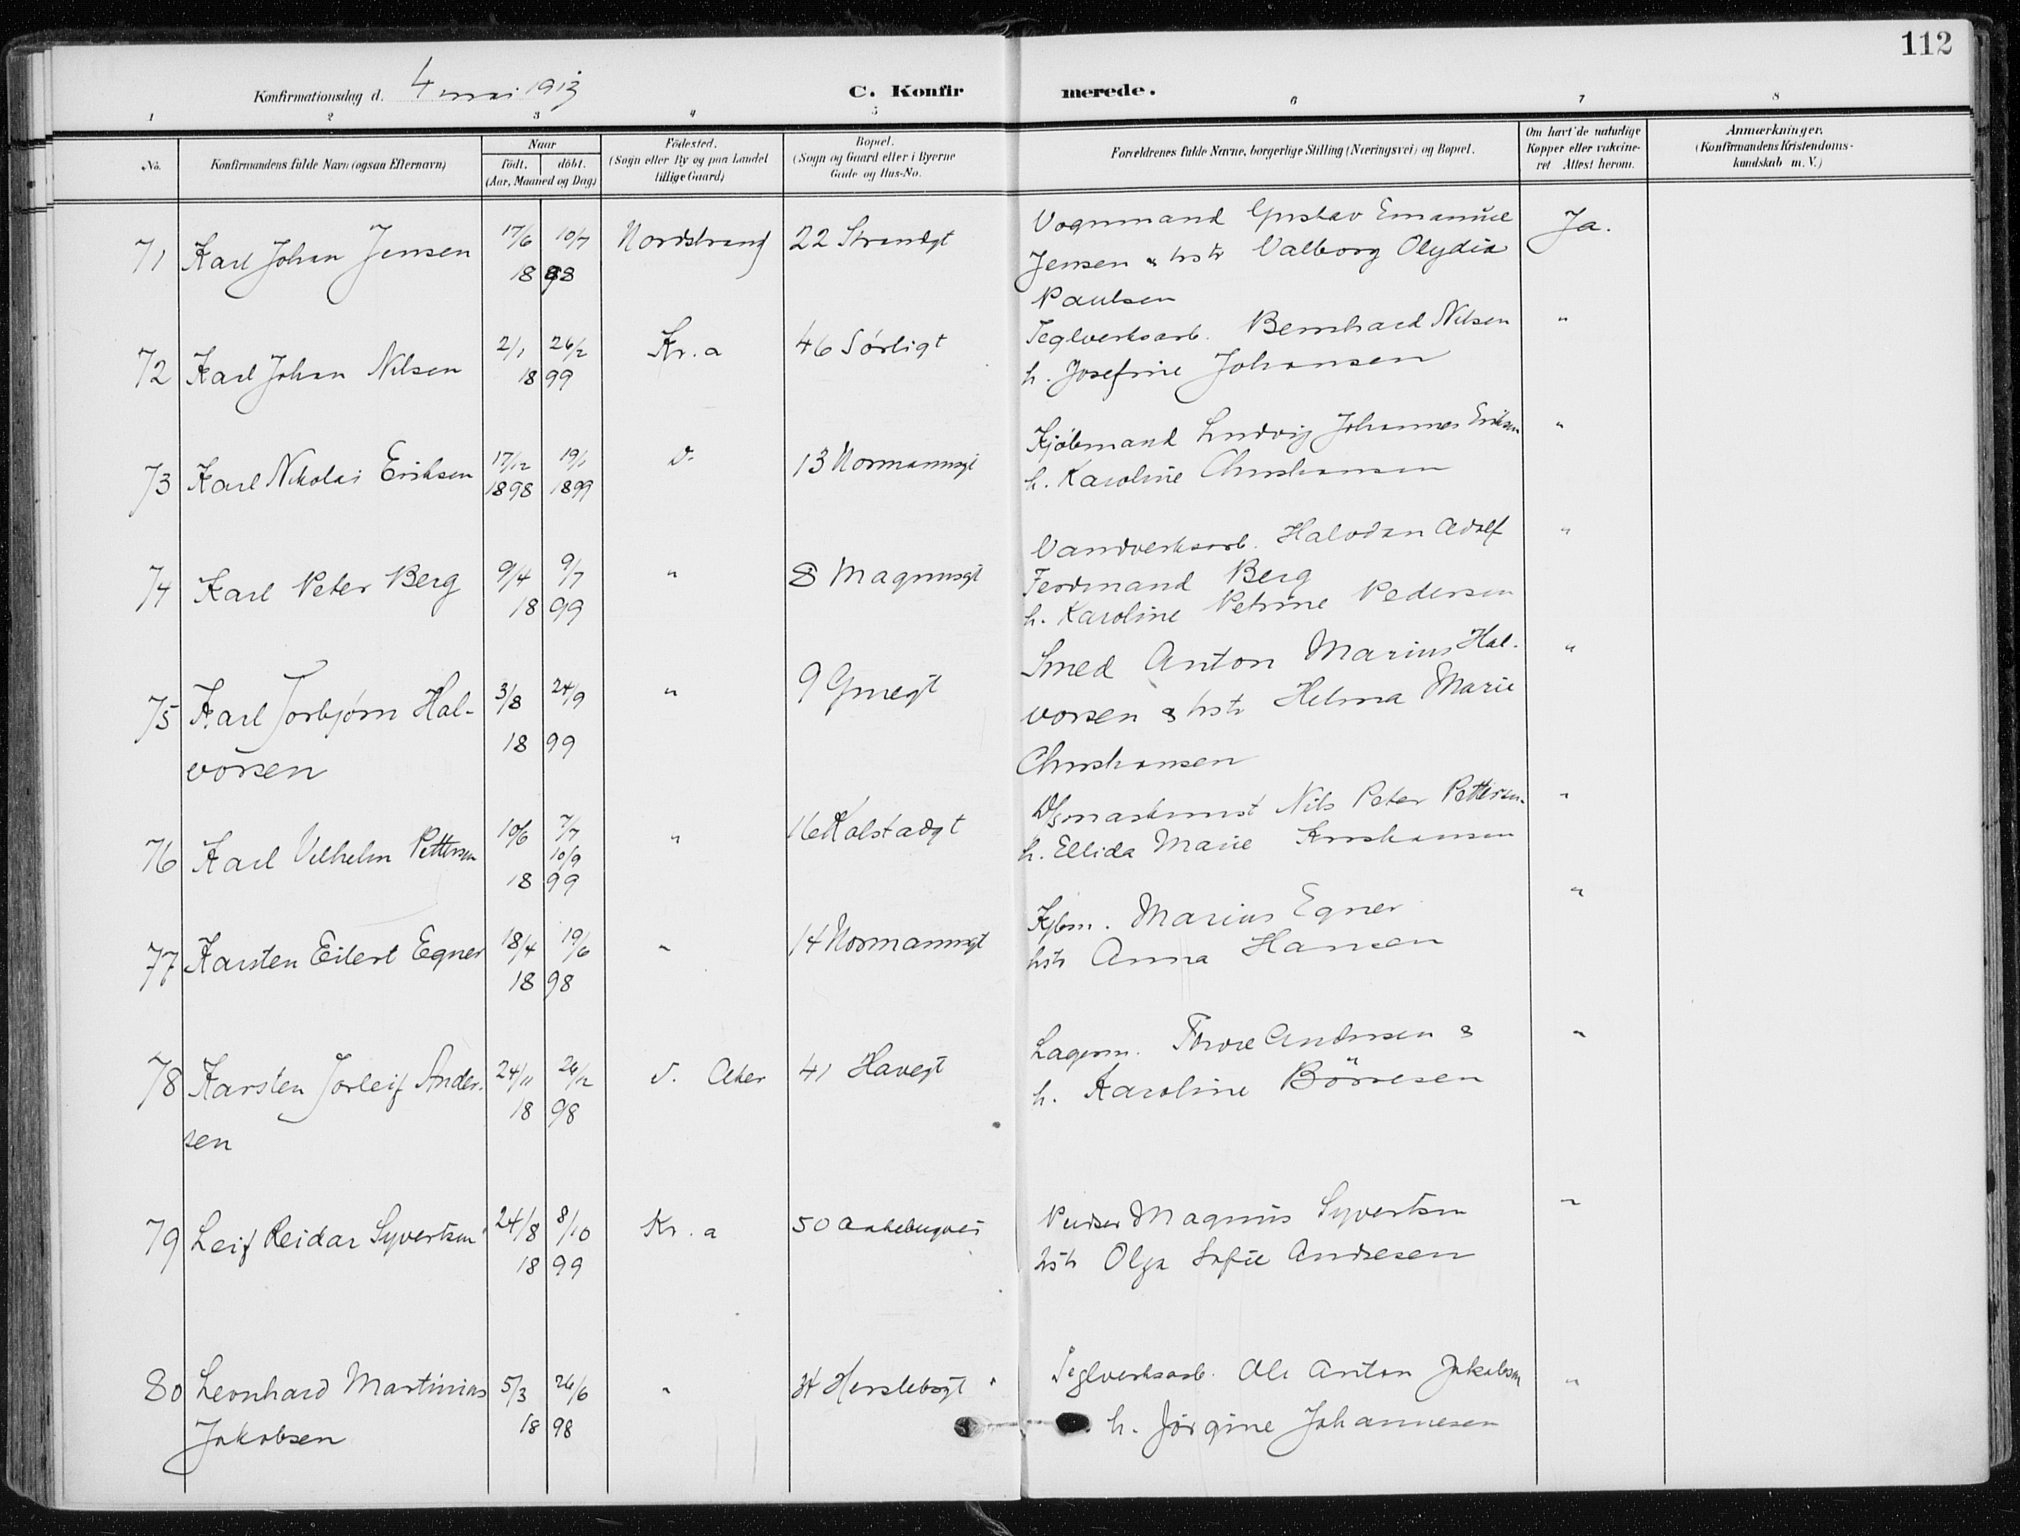 112
Konfirmationsdag d. 4 mai 1913
C. Konfirmerede.
1 2 3 4 5 6 7 8
No.
Konfirmandens fulde Navn (ogsaa Efternavn)
Naar
født. døbt.
(Aar, Maaned og Dag)
Fødested.
(Sogn eller By og paa Landet
tillige Gaard)
Bopæl.
(Sogn og Gaard eller i Byerne
Gade og Hus-No.
Forældrenes fulde Navne, borgerlige Stilling (Næringsvei) og Bopæl.
Om havt de naturlige
Kopper eller vakcine-
ret Attest herom.
Anmærkninger.
(Konfirmandens Kristendoms-
kundskab m. V.)
71 Karl Johan Jensen 17/6 10/7 Nordstrand 22 Strandgt Vognmand Gustav Emanuel Ja.
18 98 Jensen & hstr Valborg Olydia
Paulsen
72 Karl Johan Nilsen 2/1 26/2 Kr.a 46 Sørligt Teglverksarb. Bernhard Nilsen "
18 99 h. Josefine Johansen
73 Karl Nikolai Eriksen 17/12 19/1 D. 13 Normannsgt Kjøbmand Ludvig Johannes Eriksen "
1898 1899 h. Karoline Christiansen
74 Karl Peter Berg 9/4 9/7 " 8 Magnusgt Vandverksarb. Halvdan Adolf "
18 99 Ferdinand Berg
h. Karoline Petrine Pedersen
75 Karl Torbjørn Hal- 3/8 24/9 " 9 Gruegt Smed Anton Marius Hal- "
vorsen 18 99 vorsen & hstr Helma Marie
Christiansen
76 Karl Vilhelm Pettersen 10/6 7/7 " 16 Kolstadgt Nils Peter Pettersen "
10/9 h. Ellida Marie Kristiansen
18 99
77 Karsten Eilert Egner 18/4 19/6 " 14 Normannsgt Kjbm. Marius Egner "
18 98 hstr Anna Hansen
78 Karsten Torleif Ander- 24/11 26/12 V. Aker 41 Havegt Lagerm. Andersen & "
sen 18 98 h. Karoline Börresen
79 Leif Reidar Syvertsen 24/8 8/10 Kr.a 50 Aakebergvei Pudser Magnus Syvertsen "
18 99 hstr Olga Sofie Andresen
80 Leonhard Martinius 5/3 26/6 " 34 Herslebsgt Teglverksarb. Ole Anton Jakobsen "
Jakobsen 18 98 h. Jørgine Johannesen